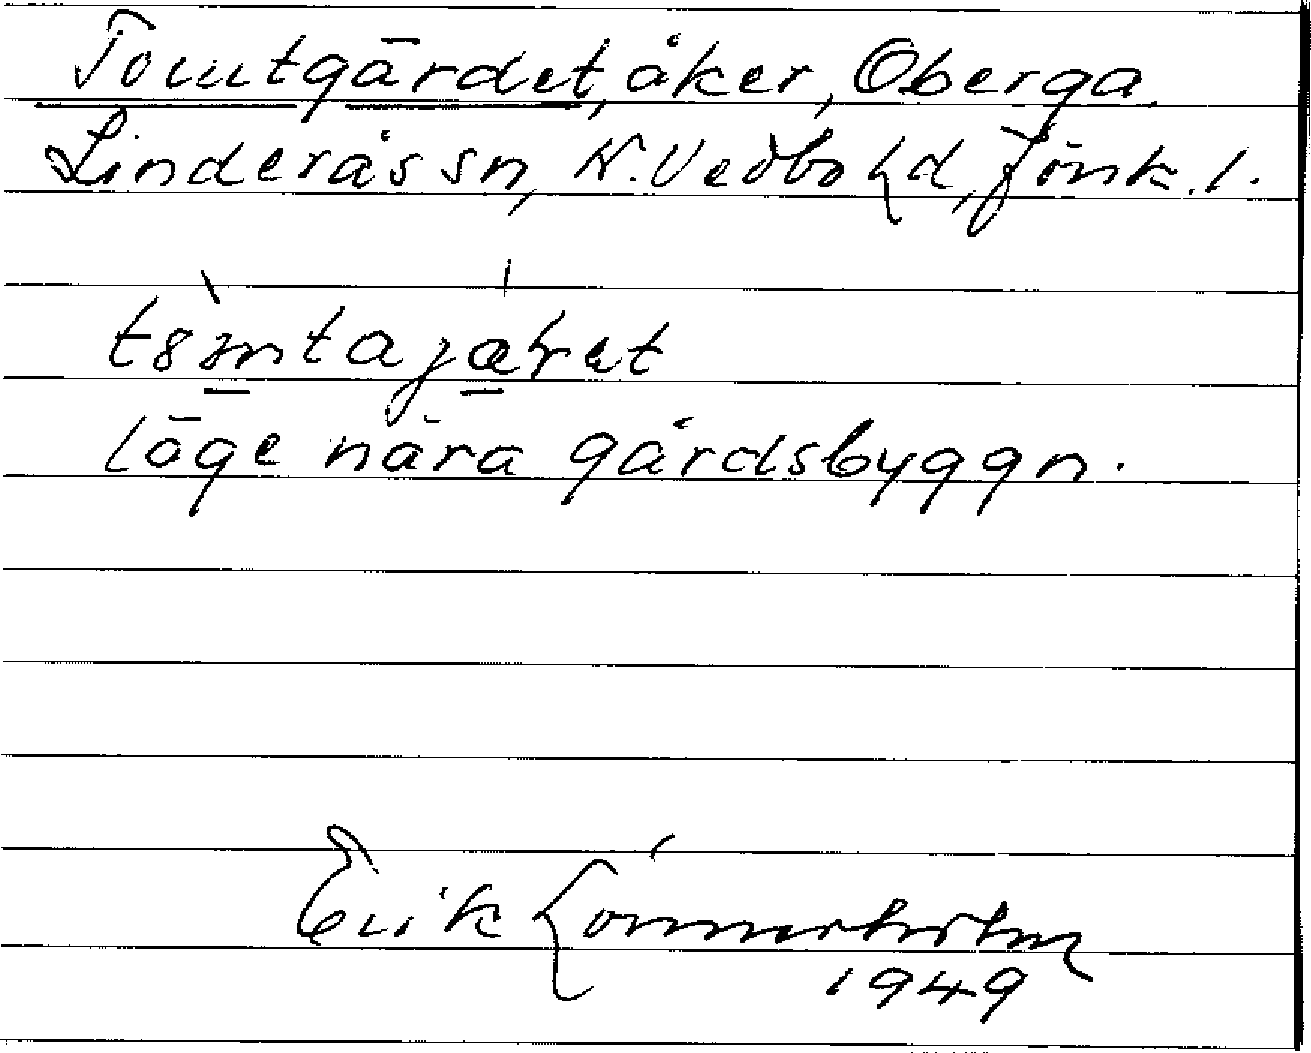 Tomtgärdet, åker, Oberga,
Linderås sn, N. Vedbo hd, Jönk. l.
läge nära gårdsbyggn.
Erik Lönnerholm
1949